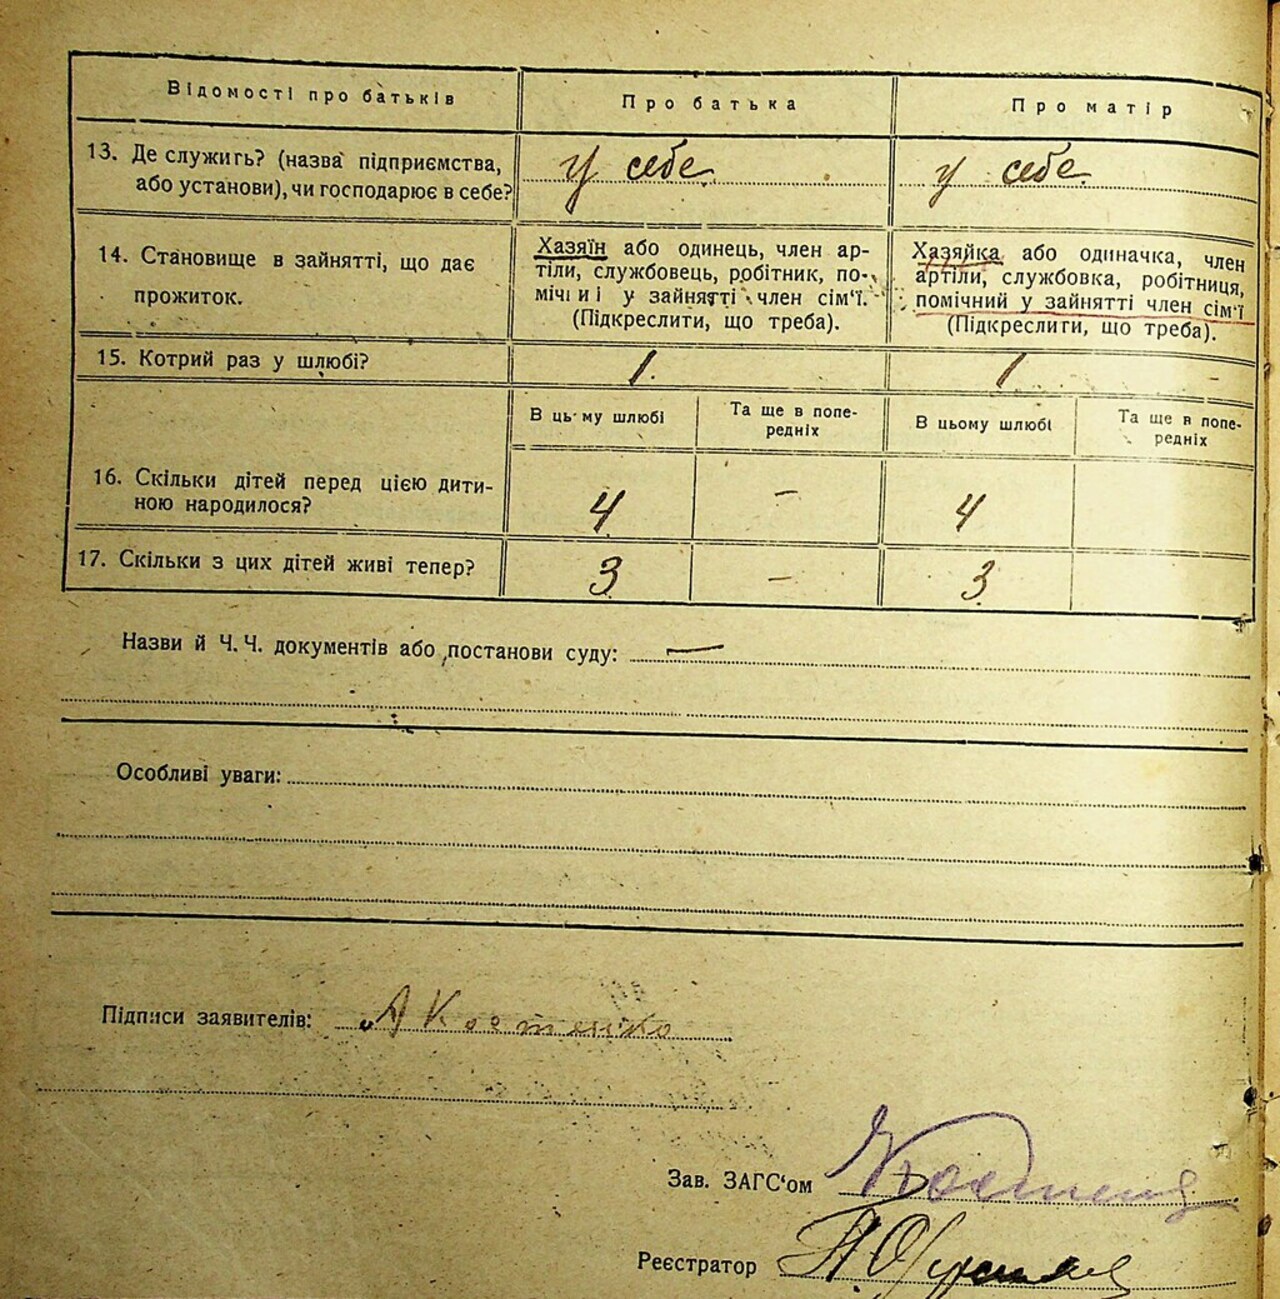 Відомості про батьків Про батька Про матір
13. Де служить? (назва підприємства, у себе у себе
або установи), чи господарює в себе?
14. Становище в зайнятті, що дає Хазяїн або одинець, член ар- Хазяйка або одиначка, член
прожиток. тіли, службовець, робітник, по- артіли, службовка, робітниця,
мічний у зайнятті член сім'ї. помічний у зайнятті член сім'ї
(Підкреслити, що треба). (Підкреслити, що треба).
15. Котрий раз у шлюбі? 1. 1
В цьому шлюбі Та ще в попе- В цьому шлюбі Та ще в попе-
редніх редніх
16. Скільки дітей перед цією дити- 4 – 4
ною народилося?
17. Скільки з цих дітей живі тепер? 3 – 3
Назви й Ч. Ч. документів або постанови суду: —
Особливі уваги:
Підписи заявителів: А Костенко
Зав. ЗАГС'ом
Реєстратор